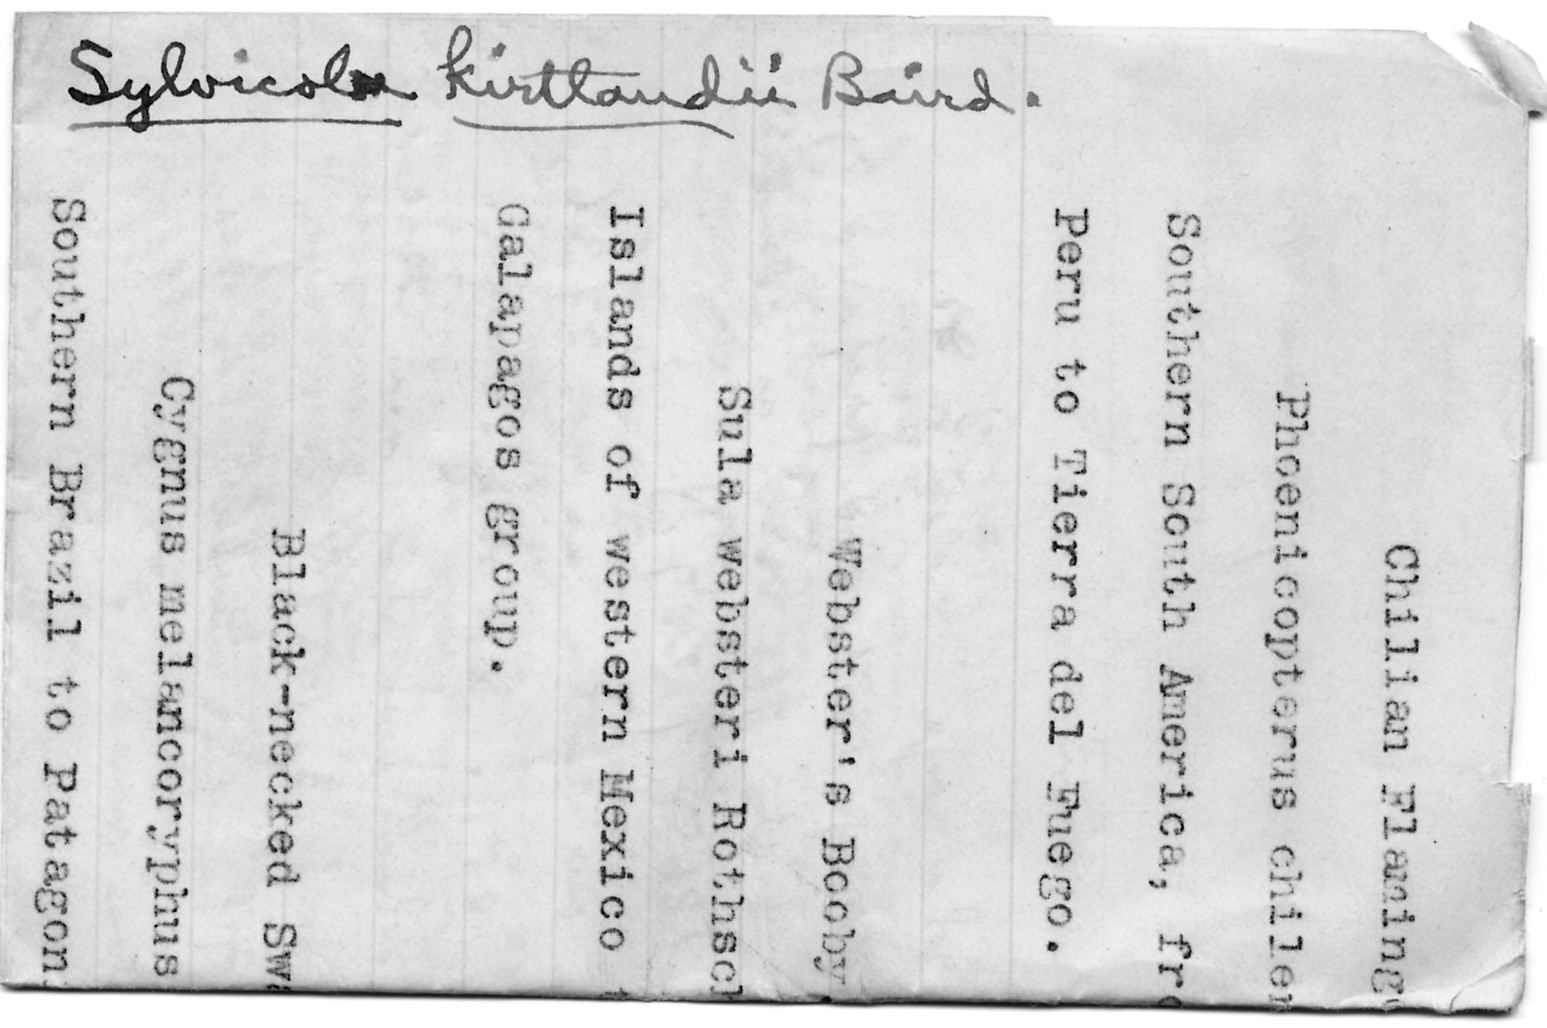 Sylvicola kirtlandii Baird.
Chilian Flaming
Phoenicopterus chilen
Southern South America, fro
Peru to Tierra del Fuego.
Webster's Booby.
Sula websteri Rothsch
Islands of western Mexico t
Galapagos group.
Black-necked Swa
Cygnus melancoryphus
Southern Brazil to Patagon